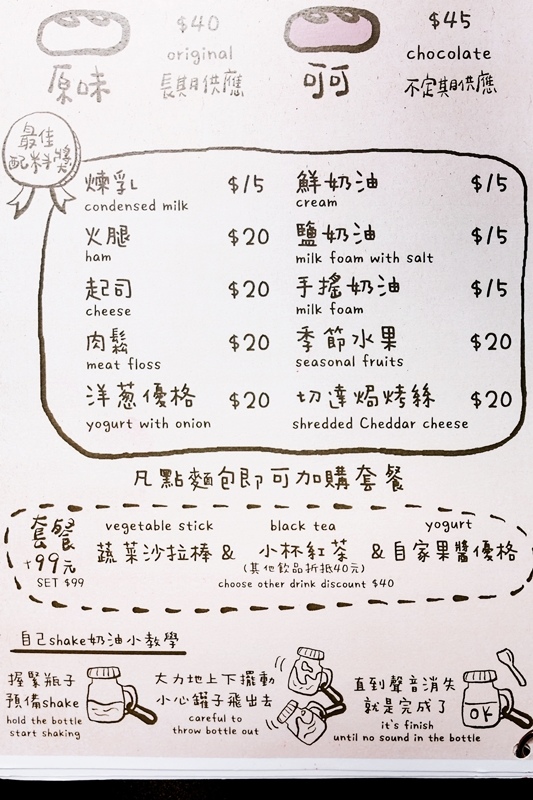 $40
original
原味
長期供應
$45
chocolate
可可
不定期供應
最佳
配料獎
煉乳 $15
condensed milk
鮮奶油 $15
cream
火腿 $20
ham
鹽奶油 $15
milk foam with salt
起司 $20
cheese
手搖奶油 $15
milk foam
肉鬆 $20
meat floss
季節水果 $20
seasonal fruits
洋葱優格 $20
yogurt with onion
切達焗烤絲 $20
shredded Cheddar cheese
凡點麵包即可加購套餐
套餐
+99元
SET $99
vegetable stick black tea yogurt
蔬菜沙拉棒 & 小杯紅茶 & 自家果醬優格
(其他飲品折抵40元)
choose other drink discount $40
自己shake奶油小教學
握緊瓶子
預備shake
hold the bottle
start shaking
大力地上下擺動
小心罐子飛出去
careful to
throw bottle out
直到聲音消失
就是完成了
it's finish
until no sound in the bottle
OK